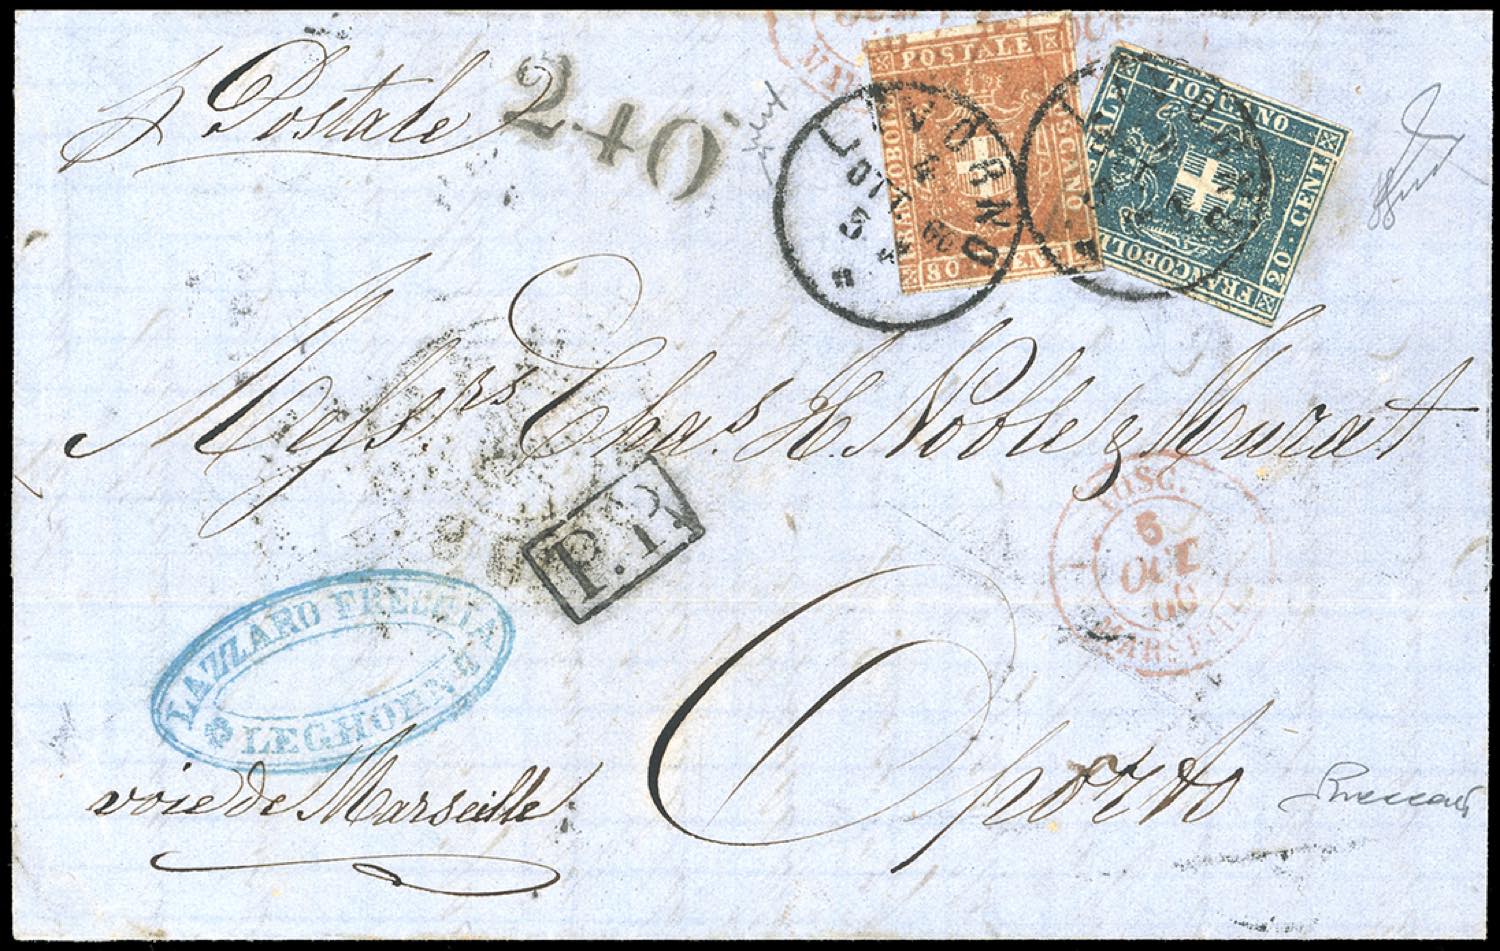 p Postale
240
POSTALE
FRANCOBOLLO
TOSCANO
80 CENT
TOSCANO
20 CENT
FRANCOBOLLO
POSTALE
LIVORNO
OTT
60
LIVORNO
Messrs. Chas H Noble & Murat
P.P.
TOSC.
5
OCT
60
MARSEILLE
LAZZARO
LEGHORN
Oporto
voie de Marseille